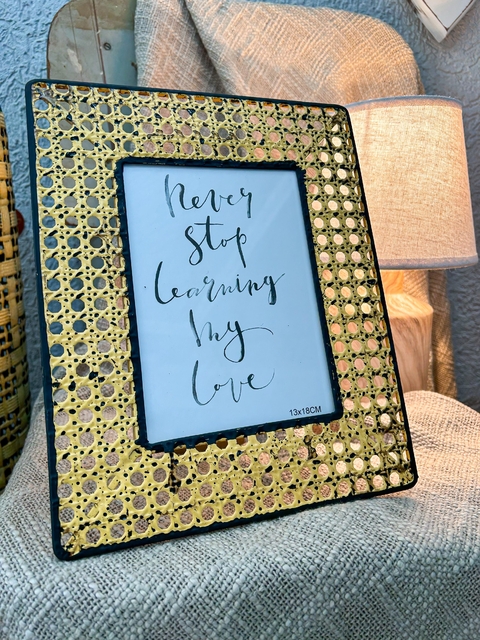 Never
Stop
Learning
My
Love
13x18CM